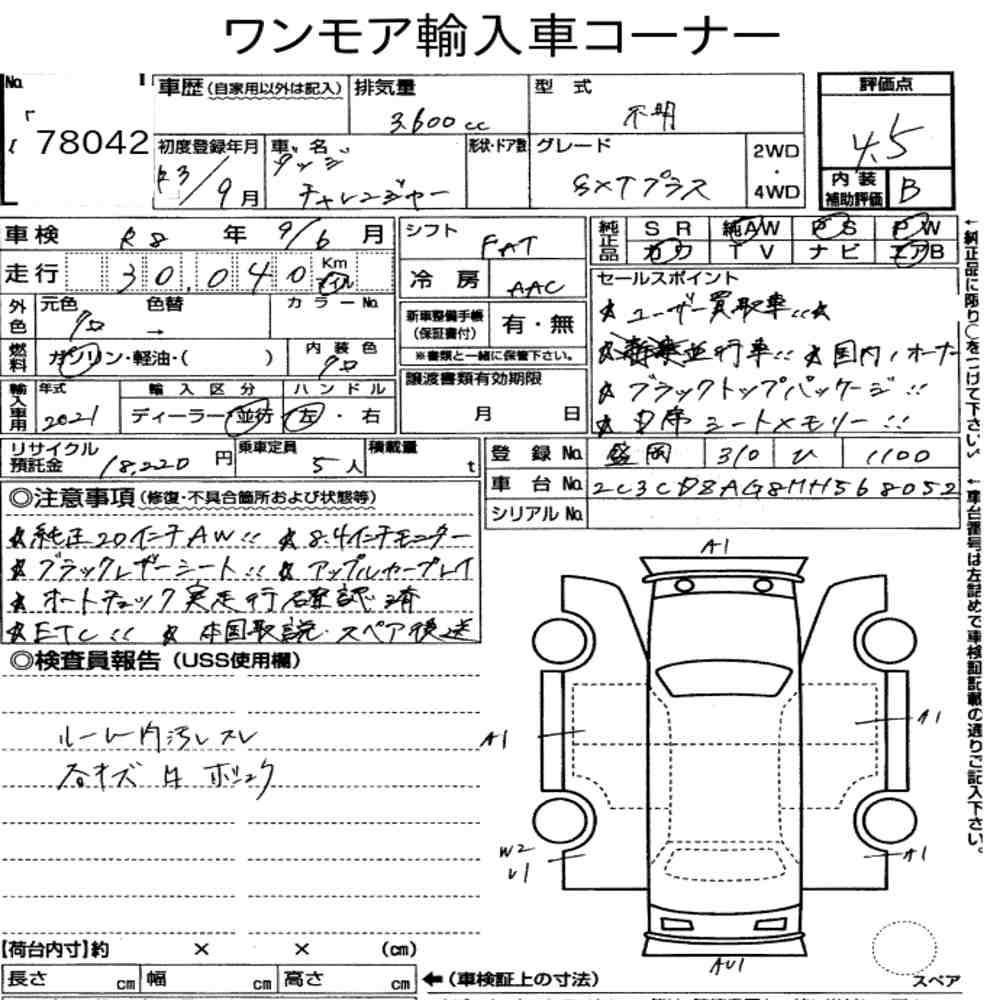 ワンモア輸入車コーナー
No. 78042
車歴(自家用以外は記入) 排気量 3600cc
型式 不明
評価点 4.5
初度登録年月 R3/9月
車名 ダッジ チャレンジャー
形状・ドア数 グレード SXTプラス
2WD・4WD
内装補助評価 B
車検 R8年 9/6月
シフト FAT
純正品 SR 純AW PS PW
カワ TV ナビ エアB
走行 30,040 Km マイル
冷房 AAC
セールスポイント
★ユーザー買取車!!★
並行車!! ★国内1オーナー
★ブラックトップパッケージ!!
★D席シートメモリー!!
外色 元色 クロ 色替 → カラーNo.
新車整備手帳(保証書付) 有・無
※書類と一緒に保管下さい。
燃料 ガソリン・軽油・( ) 内装色 クロ
譲渡書類有効期限 月 日
輸入車用 年式 2021 輸入区分 ディーラー・並行 ハンドル 左・右
リサイクル預託金 18,220円 乗車定員 5人 積載量 t
登録No. 盛岡 310 ひ 1100
車台No. 2C3CDZAG8MH568052
シリアルNo.
◎注意事項(修復・不具合箇所および状態等)
★純正20インチAW!! ★8.4インチモニター
★ブラックレザーシート!! ★アップルカープレイ
★オートチェック実走行確認済
★ETC!! ★本国取説・スペア後送
◎検査員報告(USS使用欄)
ルーム内汚レスレ
A1
A1
A1
W2
U1
A1
AU1
スペア
【荷台内寸】約 × × (cm)
長さ cm 幅 cm 高さ cm ←(車検証上の寸法)
←純正品に限り○をつけて下さい。
←車台番号は左詰めで車検証記載の通りご記入下さい。